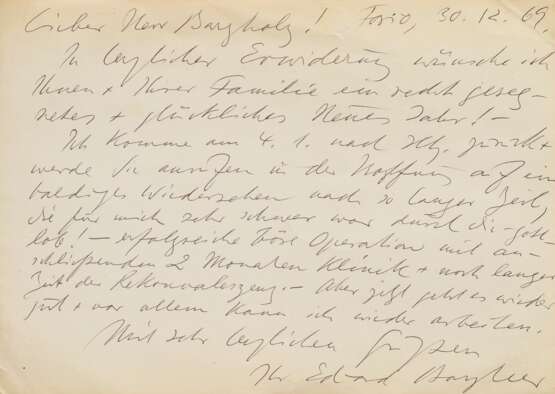 Lieber Herr Bargholz! Forio, 30.12.69.
In herzlicher Erwiderung wünsche ich
Ihnen + Ihrer Familie ein recht geseg-
netes + glückliches Neues Jahr! –
Ich komme am 4. 1. nach Hbg. zurück +
werde Sie anrufen in der Hoffnung auf ein
baldiges Wiedersehen nach so langer Zeit,
die für mich sehr schwer war durch die – gott-
lob! – erfolgreiche böse Operation mit an-
schließenden 2 Monaten Klinik + noch langer
Zeit der Rekonvaleszenz. – Aber jetzt geht es wieder
gut + vor allem kann ich wieder arbeiten.
Mit sehr herzlichen Grüßen
Ihr Eduard Bargheer